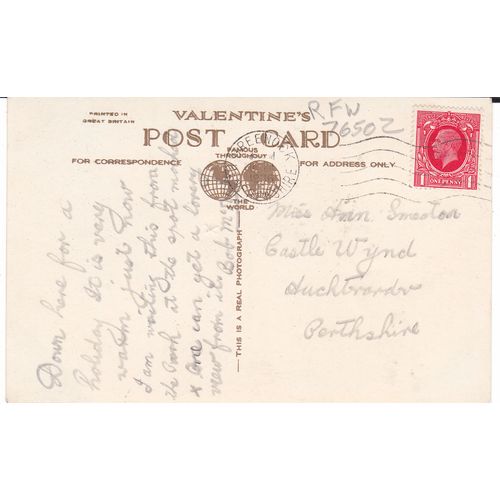 PRINTED IN
GREAT BRITAIN
VALENTINE'S
POST CARD
RFW
76502
FOR CORRESPONDENCE
FAMOUS
THROUGHOUT
THE
WORLD
FOR ADDRESS ONLY
GREENOCK
SHIRE
1 ONE PENNY 1
THIS IS A REAL PHOTOGRAPH
Down here for a
holiday It is very
warm just now
I am writing this from
the Park at the spot mark
x one can get a lovely
view from it Bob
Miss Ann Smeaton
Castle Wynd
Auchterarder
Perthshire